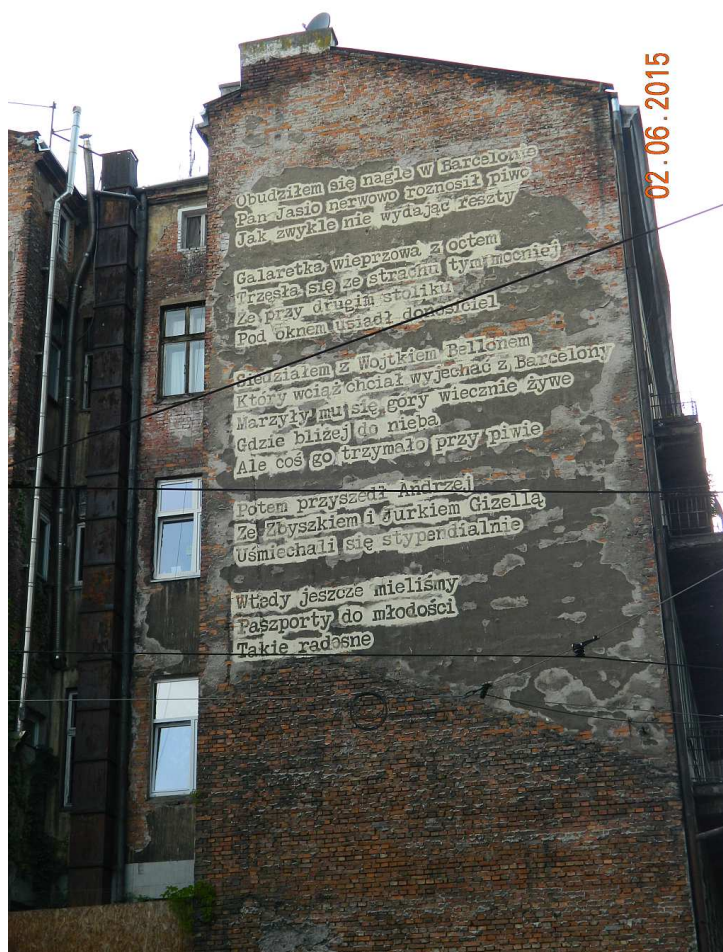 Obudziłem się nagle w Barcelonie
Pan Jasio nerwowo roznosił piwo
Jak zwykle nie wydając reszty
Galaretka wieprzowa z octem
Trzęsła się ze strachu tym mocniej
Że przy drugim stoliku
Pod oknem usiadł donosiciel
Siedziałem z Wojtkiem Bellonem
Który wciąż chciał wyjechać z Barcelony
Marzyły mu się góry wiecznie żywe
Gdzie bliżej do nieba
Ale coś go trzymało przy piwie
Potem przyszedł Andrzej
Ze Zbyszkiem i Jurkiem Gizellą
Uśmiechali się stypendialnie
Wtedy jeszcze mieliśmy
Paszporty do młodości
Takie radosne
02.06.2015